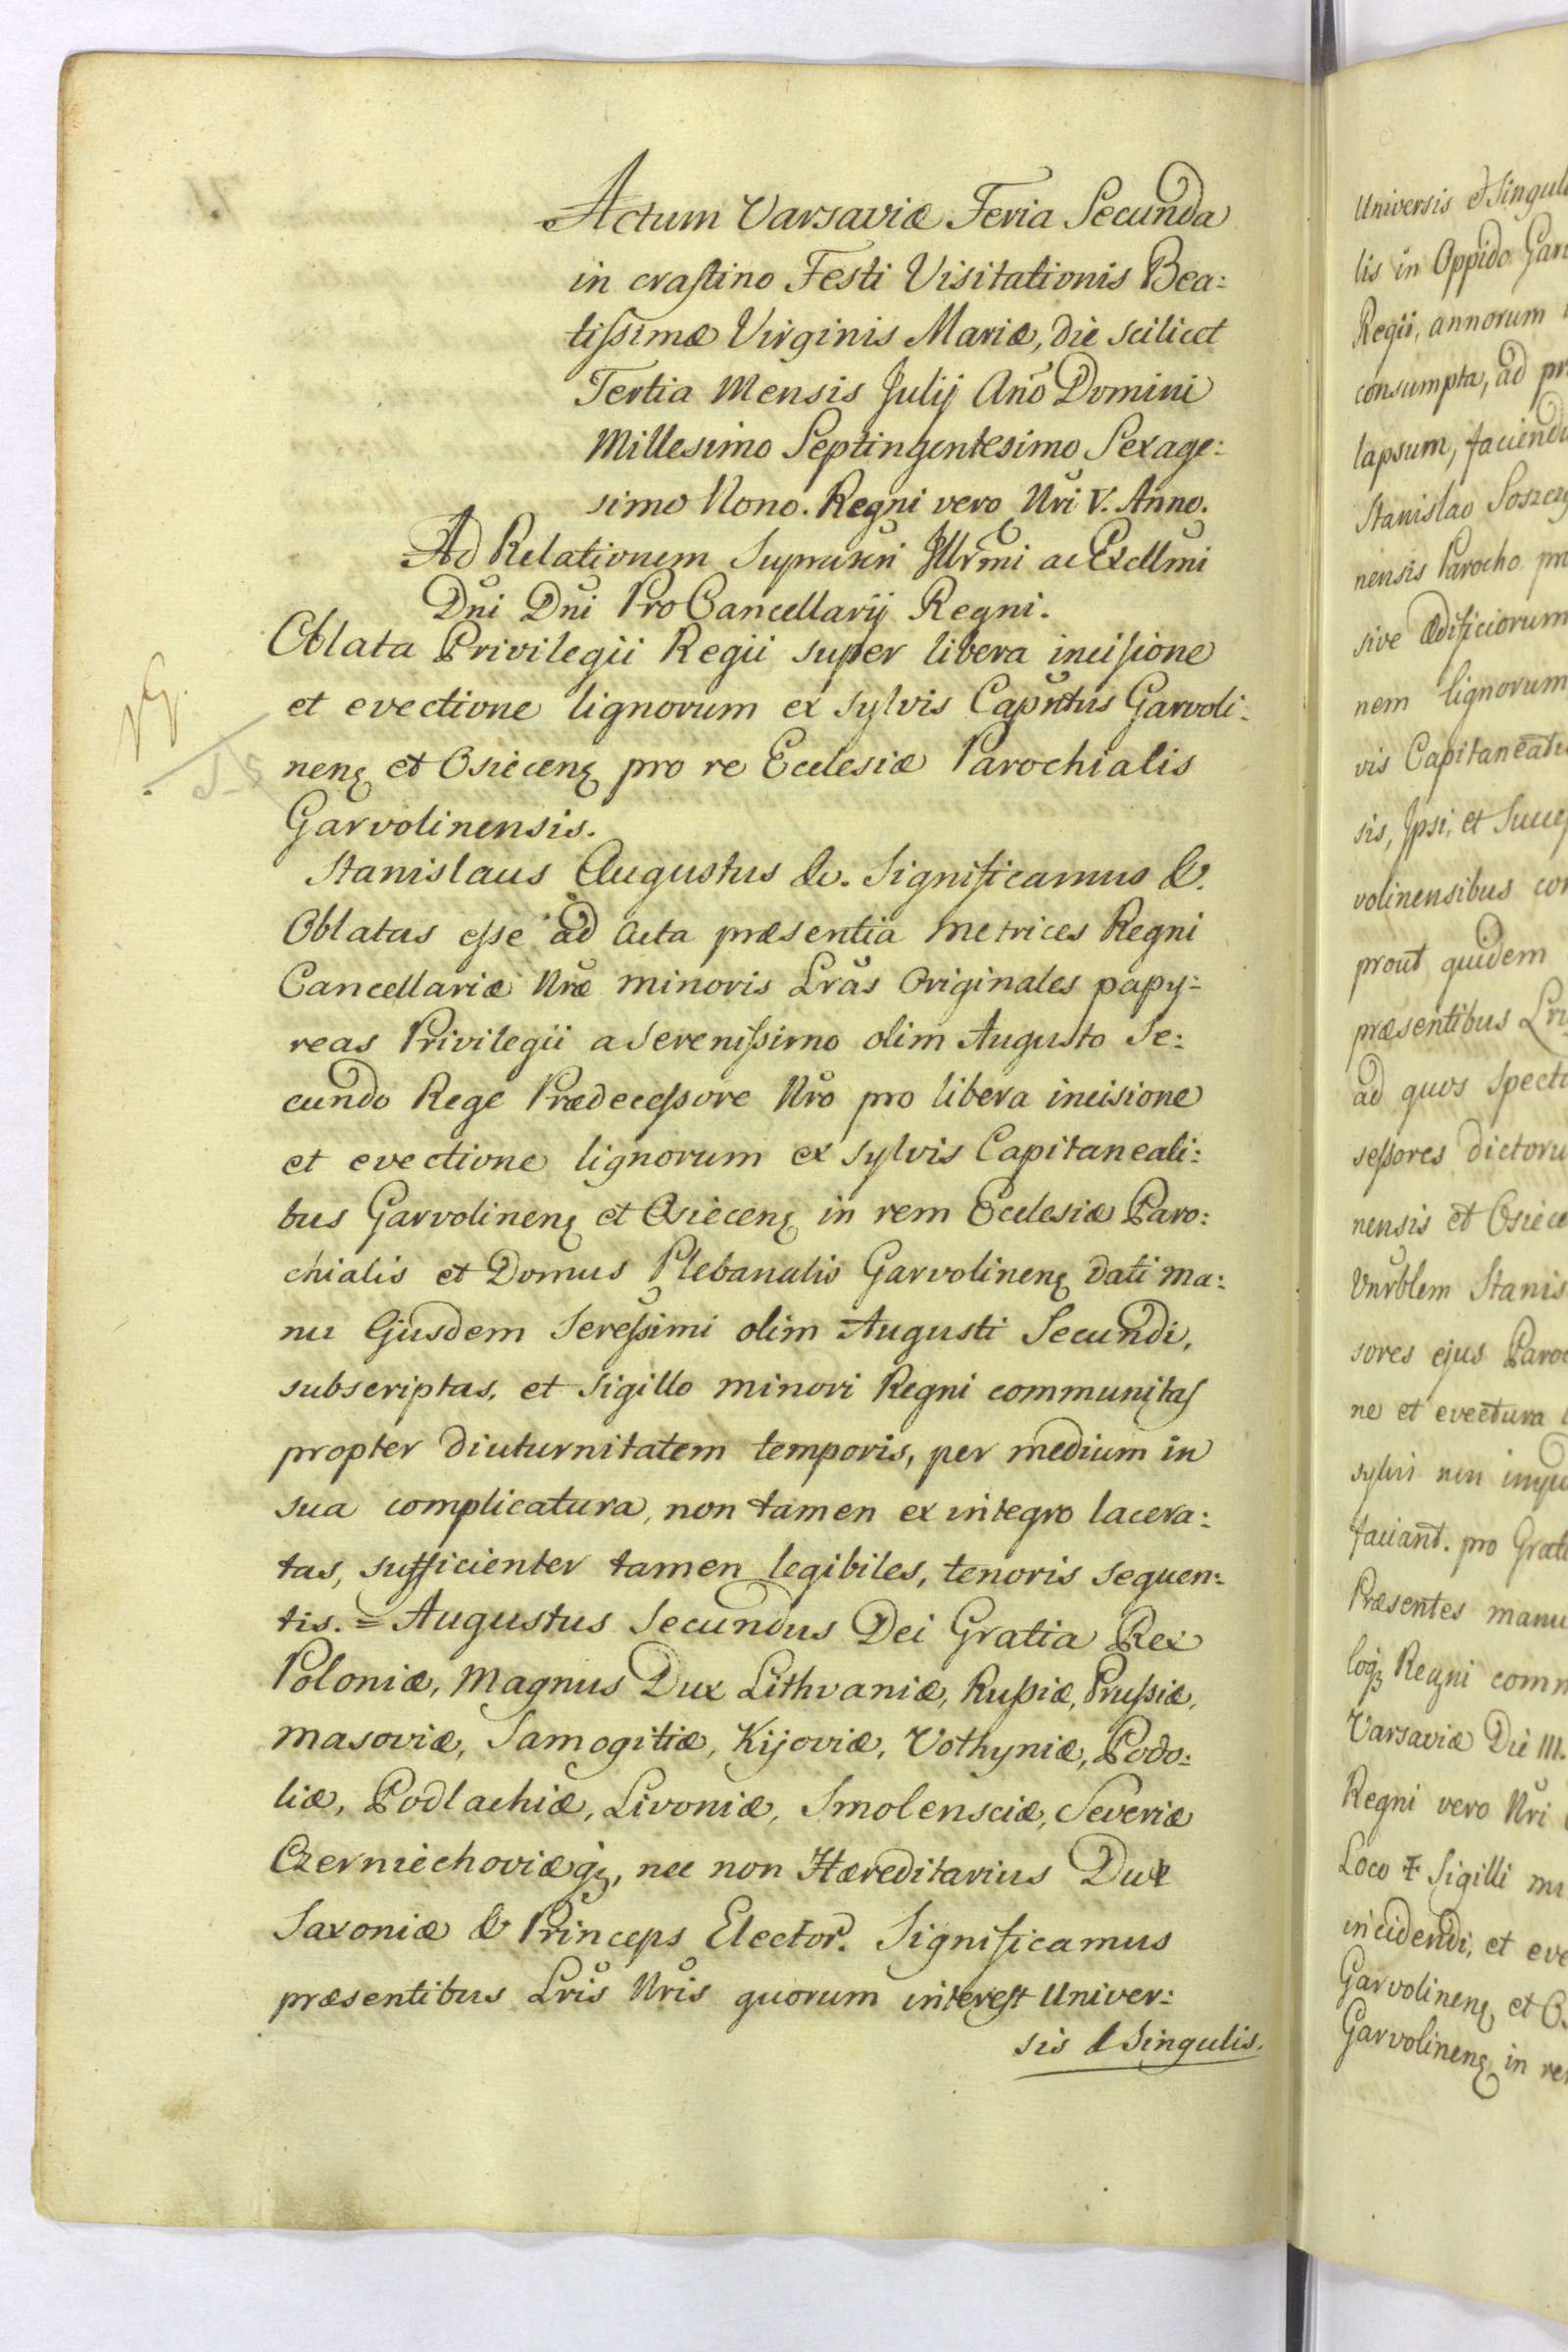 Actum Varsaviæ Feria Secunda
in crastino Festi Visitationis Bea:
tissimæ Virginis Mariæ, die scilicet
Tertia Mensis Julij Año Domini
Millesimo Septingentesimo Sexage:
simo Nono. Regni vero Nri V. Anno.
Ad Relationem Illrmi ac Excellmi
Dni Dni ProCancellarij Regni.
Oblata Privilegii Regii super libera incisione
et evectione lignorum ex sylvis Garvoli:
neng et Osieceng pro re Ecclesiæ Parochialis
Garvolinensis.
Stanislaus Augustus &c. Significamus &c.
Oblatas esse ad Acta præsentia Metrices Regni
Cancellariæ Nræ minoris Lras Originales papy:
reas Privilegii a Serenissimo olim Augusto Se:
cundo Rege Prædecessore Nro pro libera incisione
et evectione lignorum ex sylvis Capitaneali:
bus Garvolineng et Osieceng in rem Ecclesiæ Paro:
chialis et Domus Plebanalis Garvolineng dati ma:
nu Ejusdem Seressimi olim Augusti Secundi,
subscriptas, et Sigillo minori Regni communitas
propter diuturnitatem temporis, per medium in
sua complicatura, non tamen ex integro lacera:
tas, sufficienter tamen legibiles, tenoris sequen:
tis. = Augustus Secundus Dei Gratia Rex
Poloniæ, Magnus Dux Lithvaniæ, Russiæ, Prussiæ,
Masoviæ, Samogitiæ, Kijoviæ, Volhyniæ, Podo:
liæ, Podlachiæ, Livoniæ, Smolensciæ, Severiæ
Czerniechoviæq3, nec non Hæreditarius Dux
Saxoniæ & Princeps Elector. Significamus
præsentibus Lris Nris quorum interest Univer:
sis & Singulis.
Universis et Singul
lis in Oppido Gar
Regii, annorum
consumpta, ad pr
lapsum, faciend
Stanislao
nensis Parocho
sive Ædificiorum
nem lignorum
vis Capitaneatu
sis, Ipsi, et Succes
volinensibus con
prout quidem
præsentibus Lri
ad quos specta
sessores dictoru
nensis et Osiece
Vnrblem Stanis
sores ejus Paroc
ne et evectura
sylvis non impe
faciant. pro Grati
Præsentes manu
loq3 Regni comm
Varsaviæ Die III.
Regni vero Nri
Loco ‡ Sigilli mi
incidendi, et eve
Garvolineng et Os
Garvolineng in re